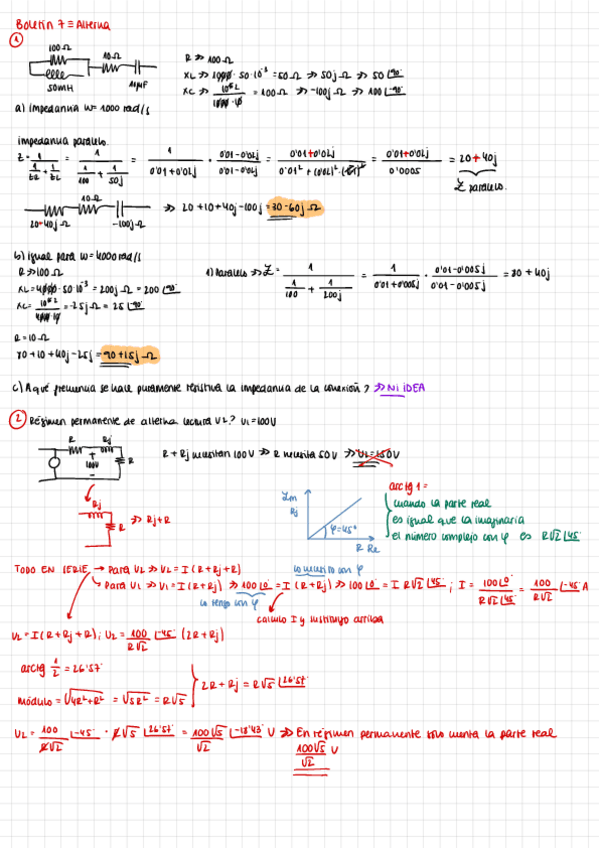 Boletín 7 ≡ Alterna
①
100Ω
10Ω
50mH
10µF
R ≫ 100Ω
XL ≫ 1000 · 50·10⁻³ = 50Ω ≫ 50j Ω ≫ 50 |90°
XC ≫ = 100Ω ≫ -100j Ω ≫ 100 |-90°
a) Impedancia W = 1000 rad/s
impedancia paralelo.
Z = 1/(1/ZR + 1/ZL) = 1/(1/100 + 1/50j) = 1/(0'01 + 0'02j) · (0'01 - 0'02j)/(0'01 - 0'02j) = (0'01+0'02j)/(0'01² + (0'02)² · (-j)²) = (0'01+0'02j)/0'0005 = 20 + 40j
Z paralelo.
10Ω
20+40j Ω
-100j Ω
≫ 20 + 10 + 40j - 100j = 30 - 60j Ω
b) igual para W = 4000 rad/s
R ≫ 100 Ω
XL = 4000 · 50·10⁻³ = 200j Ω = 200 |90°
XC = = -25j Ω = 25 |-90°
1) Paralelo ≫ Z = 1/(1/100 + 1/200j) = 1/(0'01 + 0'005j) · (0'01 - 0'005j)/(0'01 - 0'005j) = 80 + 40j
R = 10 Ω
80 + 10 + 40j - 25j = 90 + 15j Ω
c) A qué frecuencia se hace puramente resistiva la impedancia de la conexión? ≫ NI IDEA
② Régimen permanente de alterna lectura V2? V1 = 100V
R
Rj
+
100V
-
R
R + Rj necesitan 100V ≫ R necesita 50V ≫ V2 = 150V
Rj
R
≫ Rj + R
Im
Rj
φ = 45°
R Re
arctg 1 =
cuando la parte real
es igual que la imaginaria
el número complejo con φ es R√2 |45°
TODO EN SERIE → Para V2 ≫ V2 = I (R + Rj + R)
lo necesito con φ
Para V1 ≫ V1 = I (R + Rj) ≫ 100 |0° = I (R + Rj) ≫ 100 |0° = I R√2 |45° ; I = 100 |0° / R√2 |45° = 100/R√2 |-45° A
lo tengo con φ
calculo I y sustituyo arriba
V2 = I (R + Rj + R) ; V2 = 100/R√2 |-45° (2R + Rj)
arctg 1/2 = 26'57°
módulo = √4R² + R² = √5R² = R√5
2R + Rj = R√5 |26'57°
V2 = 100/R√2 |-45° · R√5 |26'57° = 100√5/√2 |-18'43° V ≫ En régimen permanente solo cuenta la parte real
100√5/√2 V